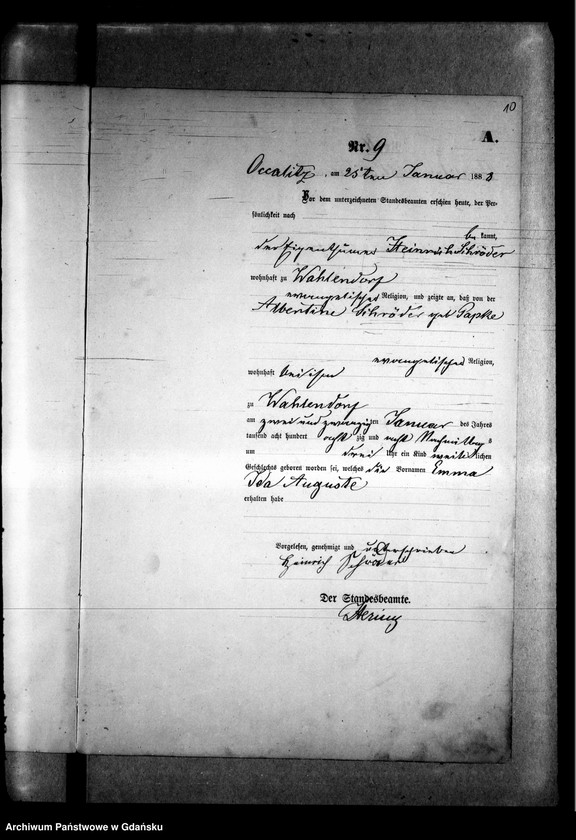 10
A.
Nr. 9
Occalitz, am 25ten Januar 1888
Vor dem unterzeichneten Standesbeamten erschien heute, der Per-
sönlichkeit nach
be kannt,
der Eigenthümer Heinrich Schröder
wohnhaft zu Wahlendorf
evangelischer Religion, und zeigte an, daß von der
Albertine Schröder geb Papke
evangelischer Religion,
wohnhaft bei ihm
zu Wahlendorf
am zwei und zwanzigten Januar des Jahres
tausend acht hundert acht zig und acht Nachmittags
um drei Uhr ein Kind weiblichen
Geschlechts geboren worden sei, welches die Vornamen Emma
Ida Auguste
erhalten habe
Vorgelesen, genehmigt und unterschrieben
Heinrich Schröder
Der Standesbeamte.
Hering
Archiwum Państwowe w Gdańsku